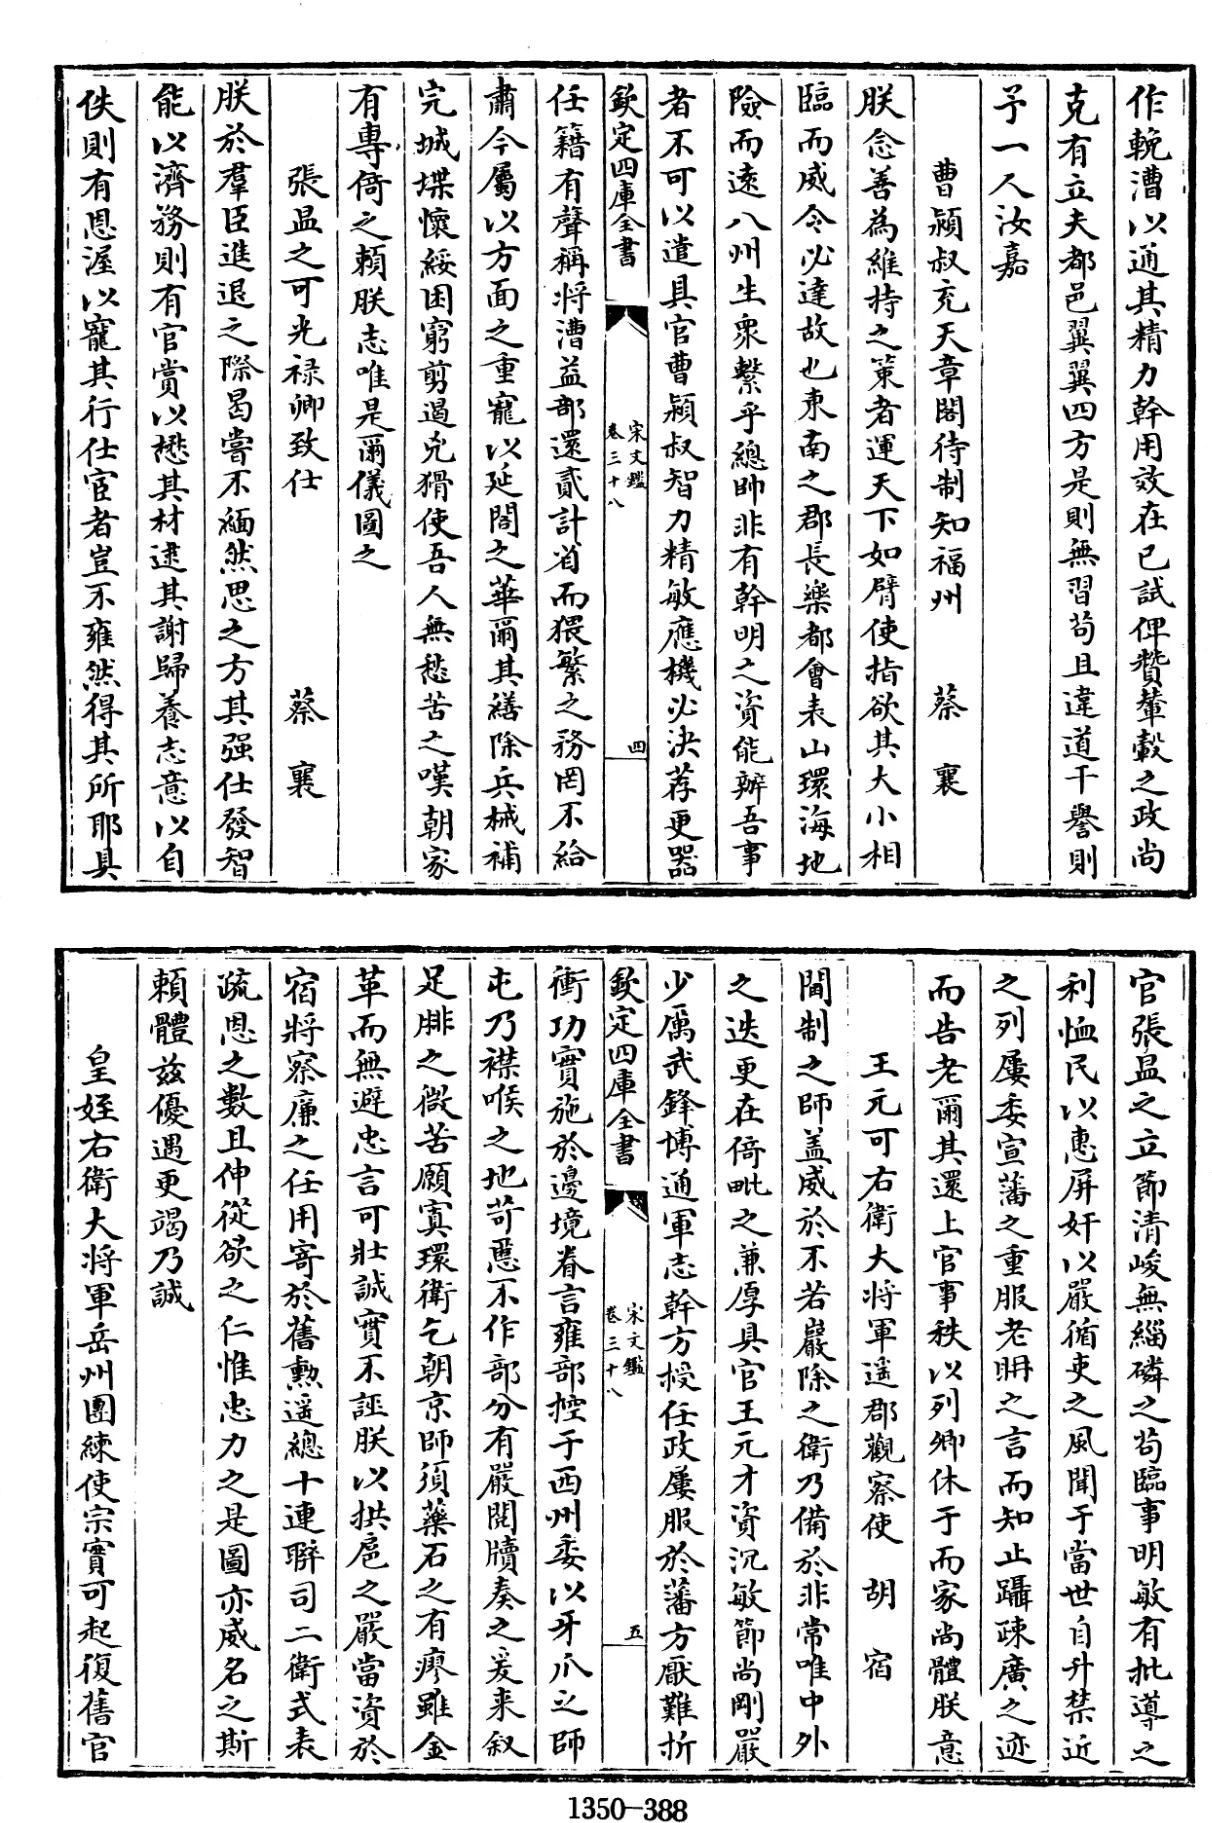 作輓漕以通其精力幹用效在已試俾贊輦轂之政尚
克有立夫都邑翼翼四方是則無習苟且違道干譽則
予一人汝嘉
曹潁叔充天章閣待制知福州　蔡襄
朕念善為維持之策者運天下如臂使指欲其大小相
臨而威令必達故也東南之郡長樂都會表山環海地
險而遠八州生衆繫乎總帥非有幹明之資能辦吾事
者不可以遣具官曹潁叔智力精敏應機必決荐更器
欽定四庫全書
宋文鑑
卷三十八
四
任籍有聲稱將漕益部還貳計省而猥繁之務罔不給
肅今屬以方面之重寵以延閣之華爾其繕除兵械補
完城堞懷綏困窮剪遏兇猾使吾人無愁苦之嘆朝家
有專倚之賴朕志唯是爾儀圖之
張昷之可光禄卿致仕　蔡襄
朕於羣臣進退之際曷嘗不緬然思之方其强仕發智
能以濟務則有官賞以懋其材逮其謝歸養志意以自
佚則有恩渥以寵其行仕宦者豈不雍然得其所耶具
官張昷之立節清峻無緇磷之茍臨事明敏有批導之
利恤民以惠屏奸以嚴循吏之風聞于當世自升禁近
之列屢委宣藩之重服老聃之言而知止躡疎廣之迹
而告老爾其還上官事秩以列卿休于而家尚體朕意
王元可右衛大將軍遥郡觀察使　胡宿
閫制之師盖威於不若嚴除之衛乃備於非常唯中外
之迭更在倚毗之兼厚具官王元才資沉敏節尚剛嚴
少厲武鋒博通軍志幹方授任政屢服於藩方厭難折
欽定四庫全書
宋文鑑
卷三十八
五
衝功實施於邊境眷言雍部控于西州委以牙爪之師
屯乃襟喉之地苛慝不作部分有嚴閱牘奏之爰来叙
足腓之微苦願寘環衛乞朝京師湏藥石之有瘳雖金
革而無避忠言可壯誠實不誣朕以拱扈之嚴當資於
宿將察廉之任用寄於舊勲遥總十連聨司二衛式表
疏恩之數且伸從欲之仁惟忠力之是圖亦威名之斯
頼體兹優遇更竭乃誠
皇姪右衛大將軍岳州團練使宗實可起復舊官
1350-388